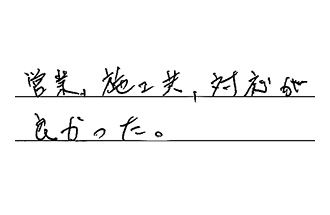 営業、施工共、対応が
良かった。